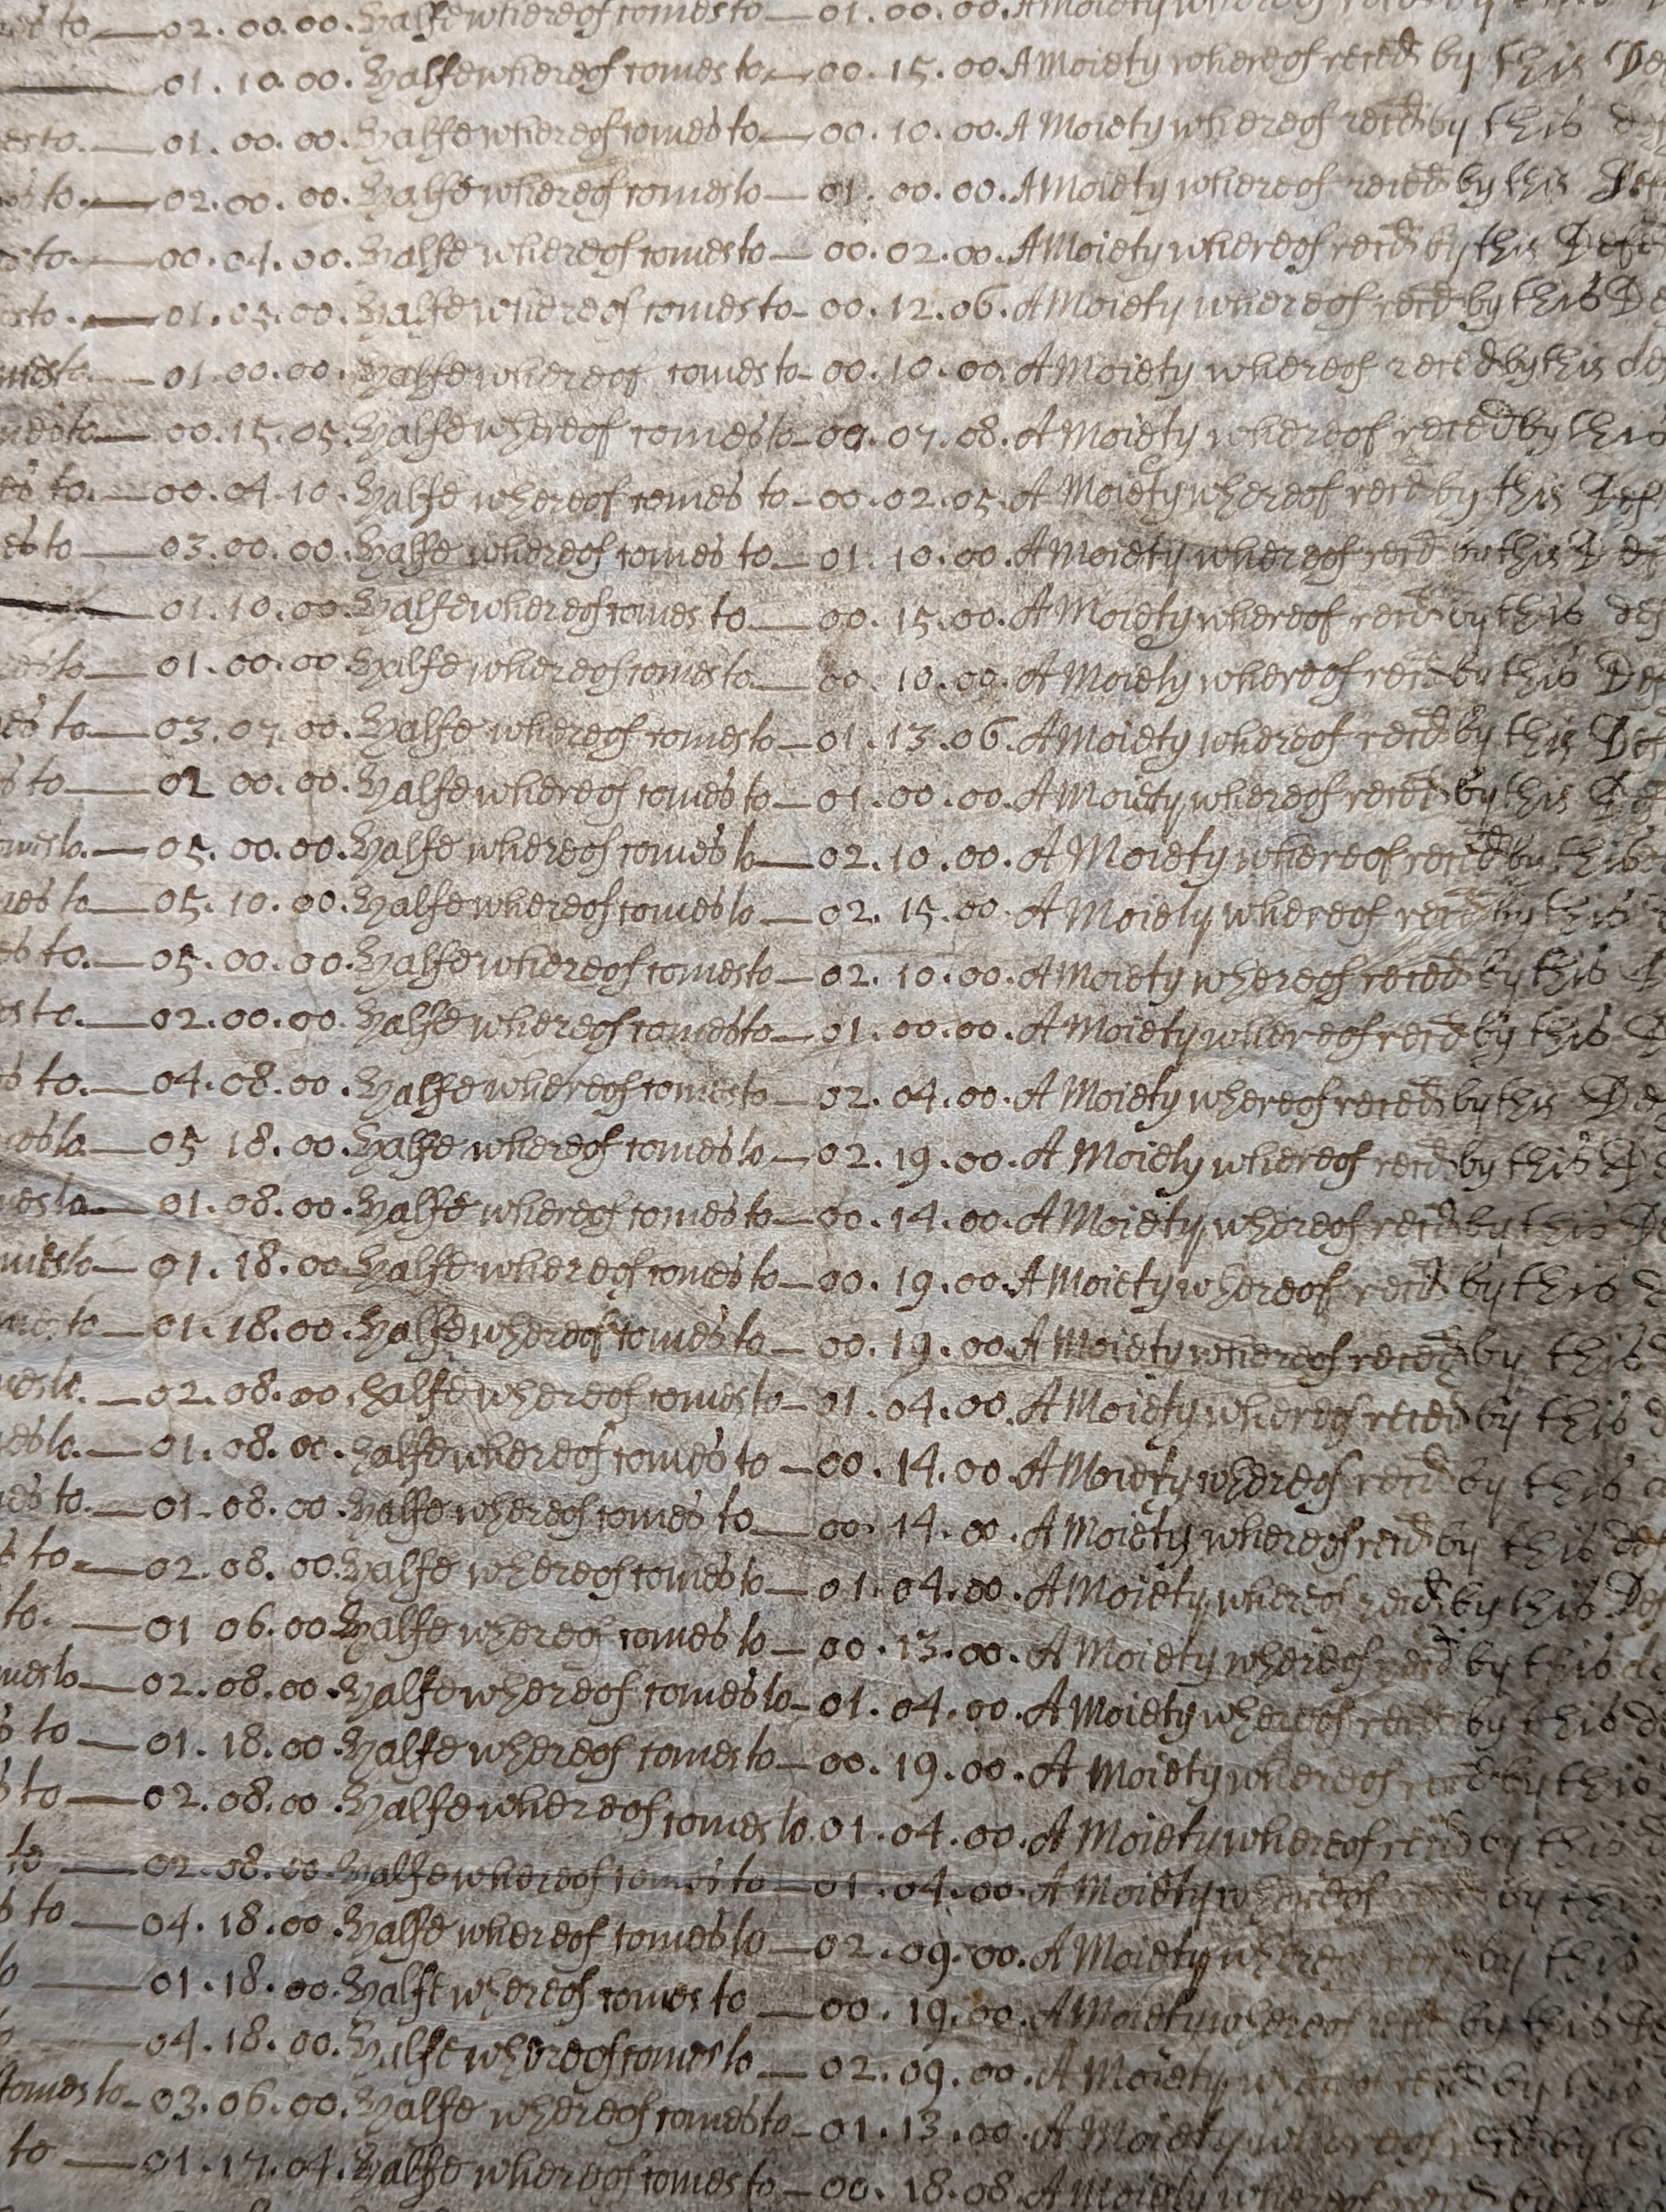 to — 02. 00. 00. Halfe whereof comes to — 01. 00. 00. A Moiety whereof
01. 10. 00. Halfe whereof comes to — 00. 15. 00. A Moiety whereof reced by this
to. — 01. 00. 00. Halfe whereof comes to — 00. 10. 00. A Moiety whereof reced by this
to. — 02. 00. 00. Halfe whereof comes to — 01. 00. 00. A Moiety whereof reced by this
to. — 00. 04. 00. Halfe whereof comes to — 00. 02. 00. A Moiety whereof reced by this
to. — 01. 05. 00. Halfe whereof comes to — 00. 12. 06. A Moiety whereof reced by this
to. — 01. 00. 00. Halfe whereof comes to — 00. 10. 00. A Moiety whereof reced by this
to — 00. 15. 05. Halfe whereof comes to — 00. 07. 08. A Moiety whereof reced by this
to. — 00. 04. 10. Halfe whereof comes to — 00. 02. 05. A Moiety whereof reced by this
to — 03. 00. 00. Halfe whereof comes to — 01. 10. 00. A Moiety whereof reced by this
01. 10. 00. Halfe whereof comes to — 00. 15. 00. A Moiety whereof reced by this
to — 01. 00. 00 Halfe whereof comes to — 00. 10. 00. A Moiety whereof reced by this
to — 03. 07. 00. Halfe whereof comes to — 01. 13. 06. A Moiety whereof reced by this
to — 02 00. 00. Halfe whereof comes to — 01. 00. 00. A Moiety whereof reced by this
to. — 05. 00. 00. Halfe whereof comes to — 02. 10. 00. A Moiety whereof reced by this
to — 05. 10. 00. Halfe whereof comes to — 02. 15. 00. A Moiety whereof reced by this
to. — 05. 00. 00. Halfe whereof comes to — 02. 10. 00. A Moiety whereof reced by this
to. — 02. 00. 00. Halfe whereof comes to — 01. 00. 00. A Moiety whereof reced by this
to. — 04. 08. 00. Halfe whereof comes to — 02. 04. 00. A Moiety whereof reced by this
to. — 05 18. 00. Halfe whereof comes to — 02. 19. 00. A Moiety whereof reced by this
to. — 01. 08. 00. Halfe whereof comes to — 00. 14. 00. A Moiety whereof reced by this
to — 01. 18. 00. Halfe whereof comes to — 00. 19. 00. A Moiety whereof reced by this
to — 01. 18. 00. Halfe whereof comes to — 00. 19. 00. A Moiety whereof reced by this
to. — 02. 08. 00. halfe whereof comes to — 01. 04. 00. A Moiety whereof reced by this
to. — 01. 08. 00. halfe whereof comes to — 00. 14. 00. A Moiety whereof reced by this
to. — 01. 08. 00. Halfe whereof comes to — 00. 14. 00. A Moiety whereof reced by this
to. — 02. 08. 00. Halfe whereof comes to — 01. 04. 00. A Moiety whereof reced by this
to. — 01 06. 00 Halfe whereof comes to — 00. 13. 00. A Moiety whereof reced by this
to — 02. 08. 00. Halfe whereof comes to — 01. 04. 00. A Moiety whereof reced by this
to — 01. 18. 00. Halfe whereof comes to — 00. 19. 00. A Moiety whereof reced by this
to — 02. 08. 00. Halfe whereof comes to. 01. 04. 00. A Moiety whereof reced by this
to — 02. 08. 00. Halfe whereof comes to — 01. 04. 00. A Moiety whereof by
to — 04. 18. 00. Halfe whereof comes to — 02. 09. 00. A Moiety whereof by this
— 01. 18. 00. Halfe whereof comes to — 00. 19. 00. A Moiety whereof reced by this
— 04. 18. 00. Halfe whereof comes to — 02. 09. 00. A Moiety whereof reced by this
comes to — 03. 06. 00. Halfe whereof comes to — 01. 13. 00. A Moiety whereof by
to — 01. 17. 04. Halfe whereof comes to — 00. 18. 08. A Moiety whereof